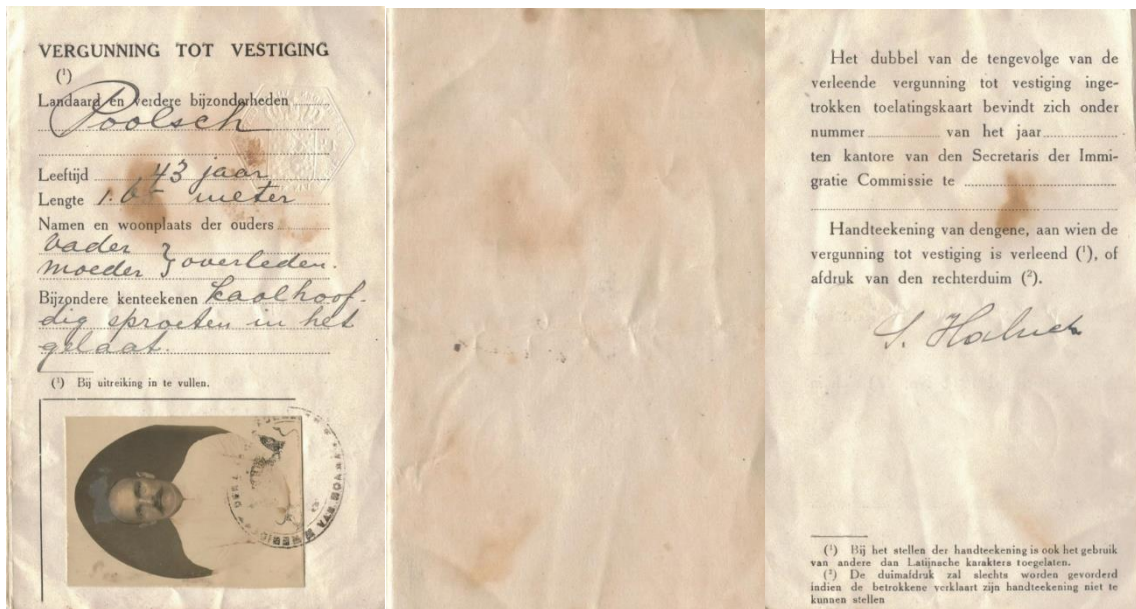 VERGUNNING TOT VESTIGING
(¹)
Landaard en verdere bijzonderheden
Poolsch
Leeftijd 43 jaar
Lengte 1.65 meter
Namen en woonplaats der ouders
vader
moeder } overleden.
Bijzondere kenteekenen kaalhoof-
dig sproeten in het
gelaat.
(¹) Bij uitreiking in te vullen.
Het dubbel van de tengevolge van de
verleende vergunning tot vestiging inge-
trokken toelatingskaart bevindt zich onder
nummer van het jaar
ten kantore van den Secretaris der Immi-
gratie Commissie te
Handteekening van dengene, aan wien de
vergunning tot vestiging is verleend (¹), of
afdruk van den rechterduim (²).
S.
(¹) Bij het stellen der handteekening is ook het gebruik
van andere dan Latijnsche karakters toegelaten.
(²) De duimafdruk zal slechts worden gevorderd
indien de betrokkene verklaart zijn handteekening niet te
kunnen stellen